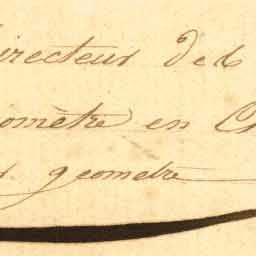 irecteur des
omètre en C
geometre